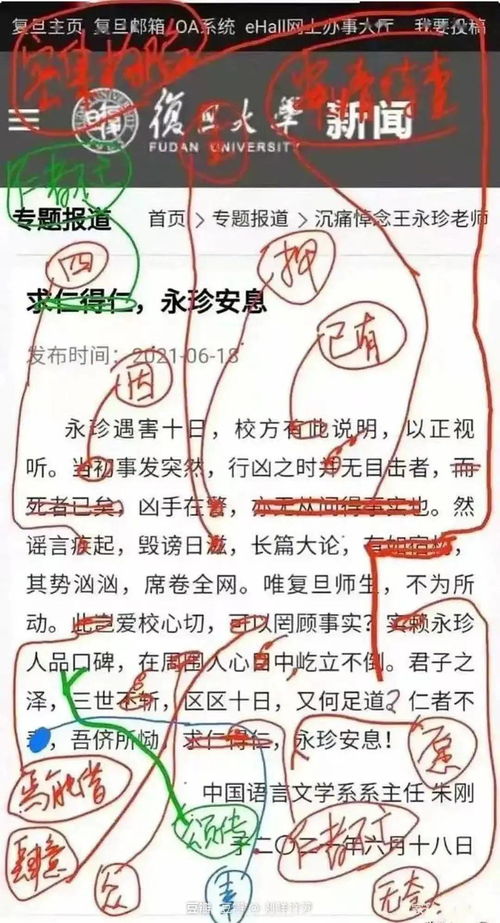 复旦主页 复旦邮箱 OA系统 eHall网上办事大厅 我要投稿
復旦大學 新闻
FUDAN UNIVERSITY
专题报道 首页 > 专题报道 > 沉痛悼念王永珍老师
四
押
求仁得仁，永珍安息
已有
发布时间：2021-06-18
因
永珍遇害十日，校方有此说明，以正视
听。当初事发突然，行凶之时并无目击者，而
死者已矣，凶手在警，亦无从问得事实也。然
谣言疾起，毁谤日滋，长篇大论，有如宿构，
其势汹汹，席卷全网。唯复旦师生，不为所
动。此岂爱校心切，可以罔顾事实？实赖永珍
人品口碑，在周围人心目中屹立不倒。君子之
泽，三世不斩，区区十日，又何足道？仁者不
寿，吾侪所恸，求仁得仁，永珍安息！
焉能借
愿
中国语言文学系系主任 朱刚
颂传
二〇二一年六月十八日
肆意
众
仁者不亡
无奈